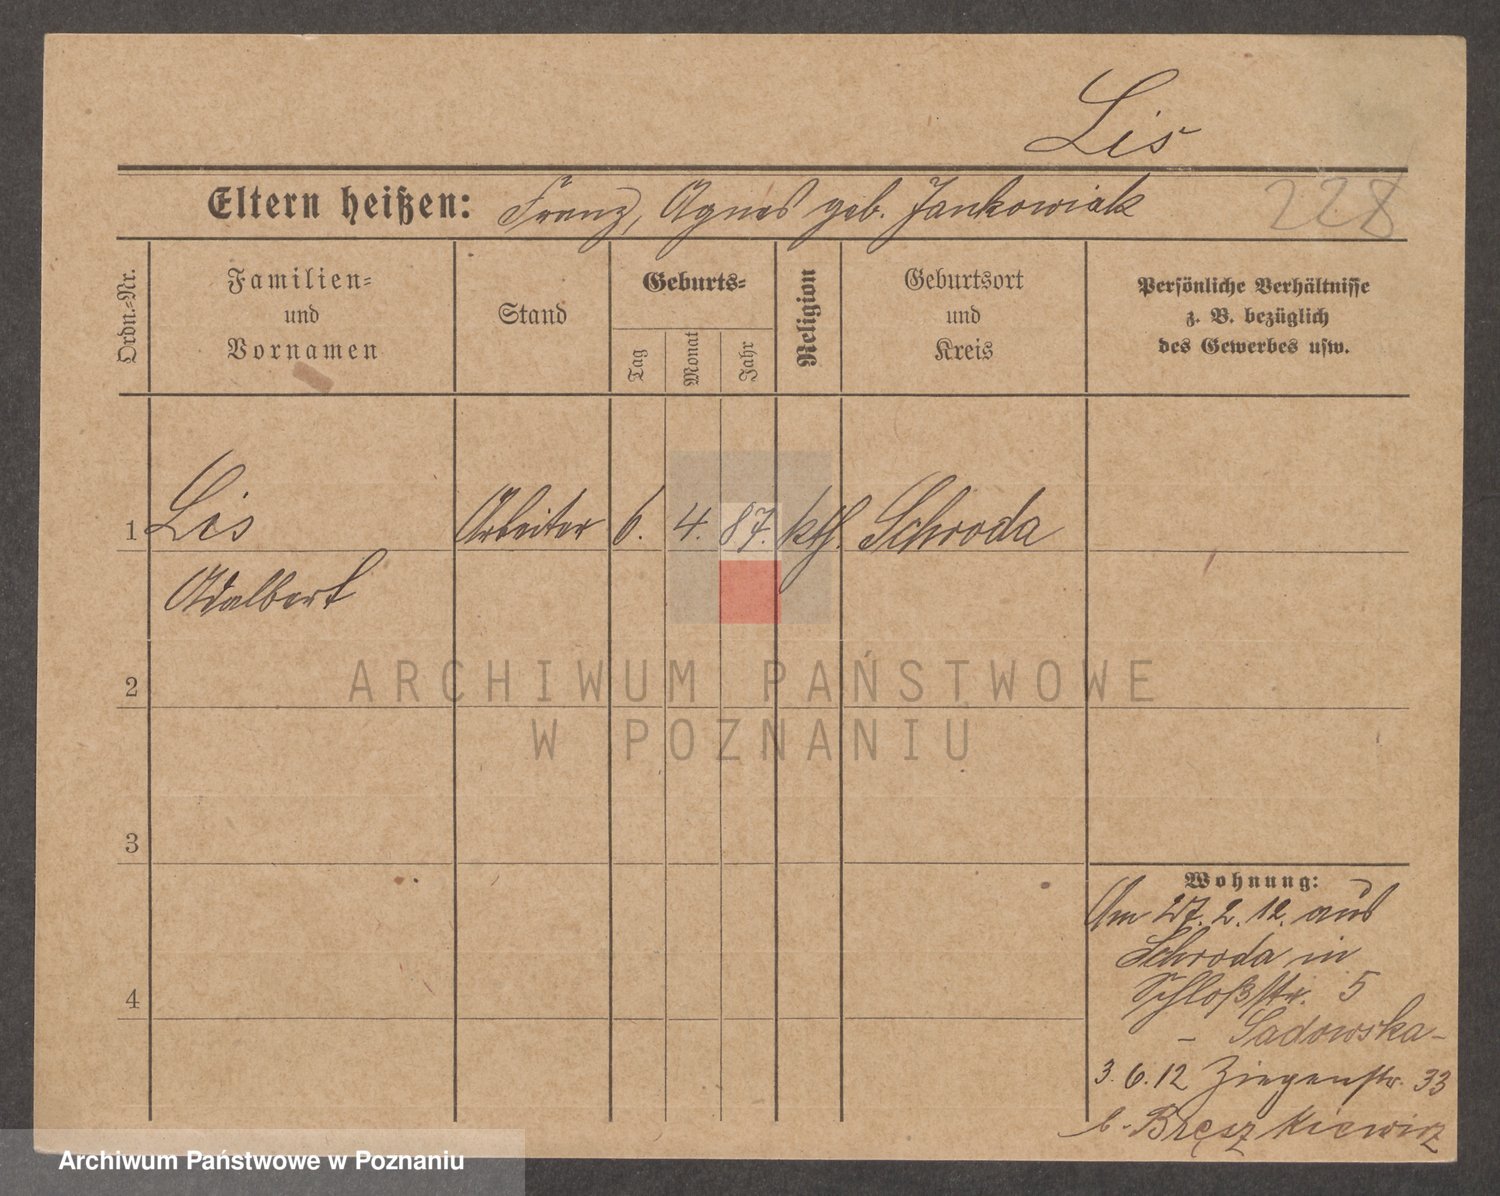 Lis
Eltern heißen: Franz, Agnes geb. Jankowiak
228
Ordn.-Nr.
Familien-
und
Vornamen
Stand
Geburts-
Tag
Monat
Jahr
Religion
Geburtsort
und
Kreis
Persönliche Verhältnisse
z. B. bezüglich
des Gewerbes usw.
1 Lis Arbeiter 6. 4. 87. kth. Schroda
Adalbert
ARCHIWUM PAŃSTWOWE
W POZNANIU
2
3
4
Wohnung:
Am 27. 2. 12. aus
Schroda in
Schloßstr. 5
- Sadowska -
3. 6. 12 Ziegenstr. 33
b. Bręszkiewicz
Archiwum Państwowe w Poznaniu